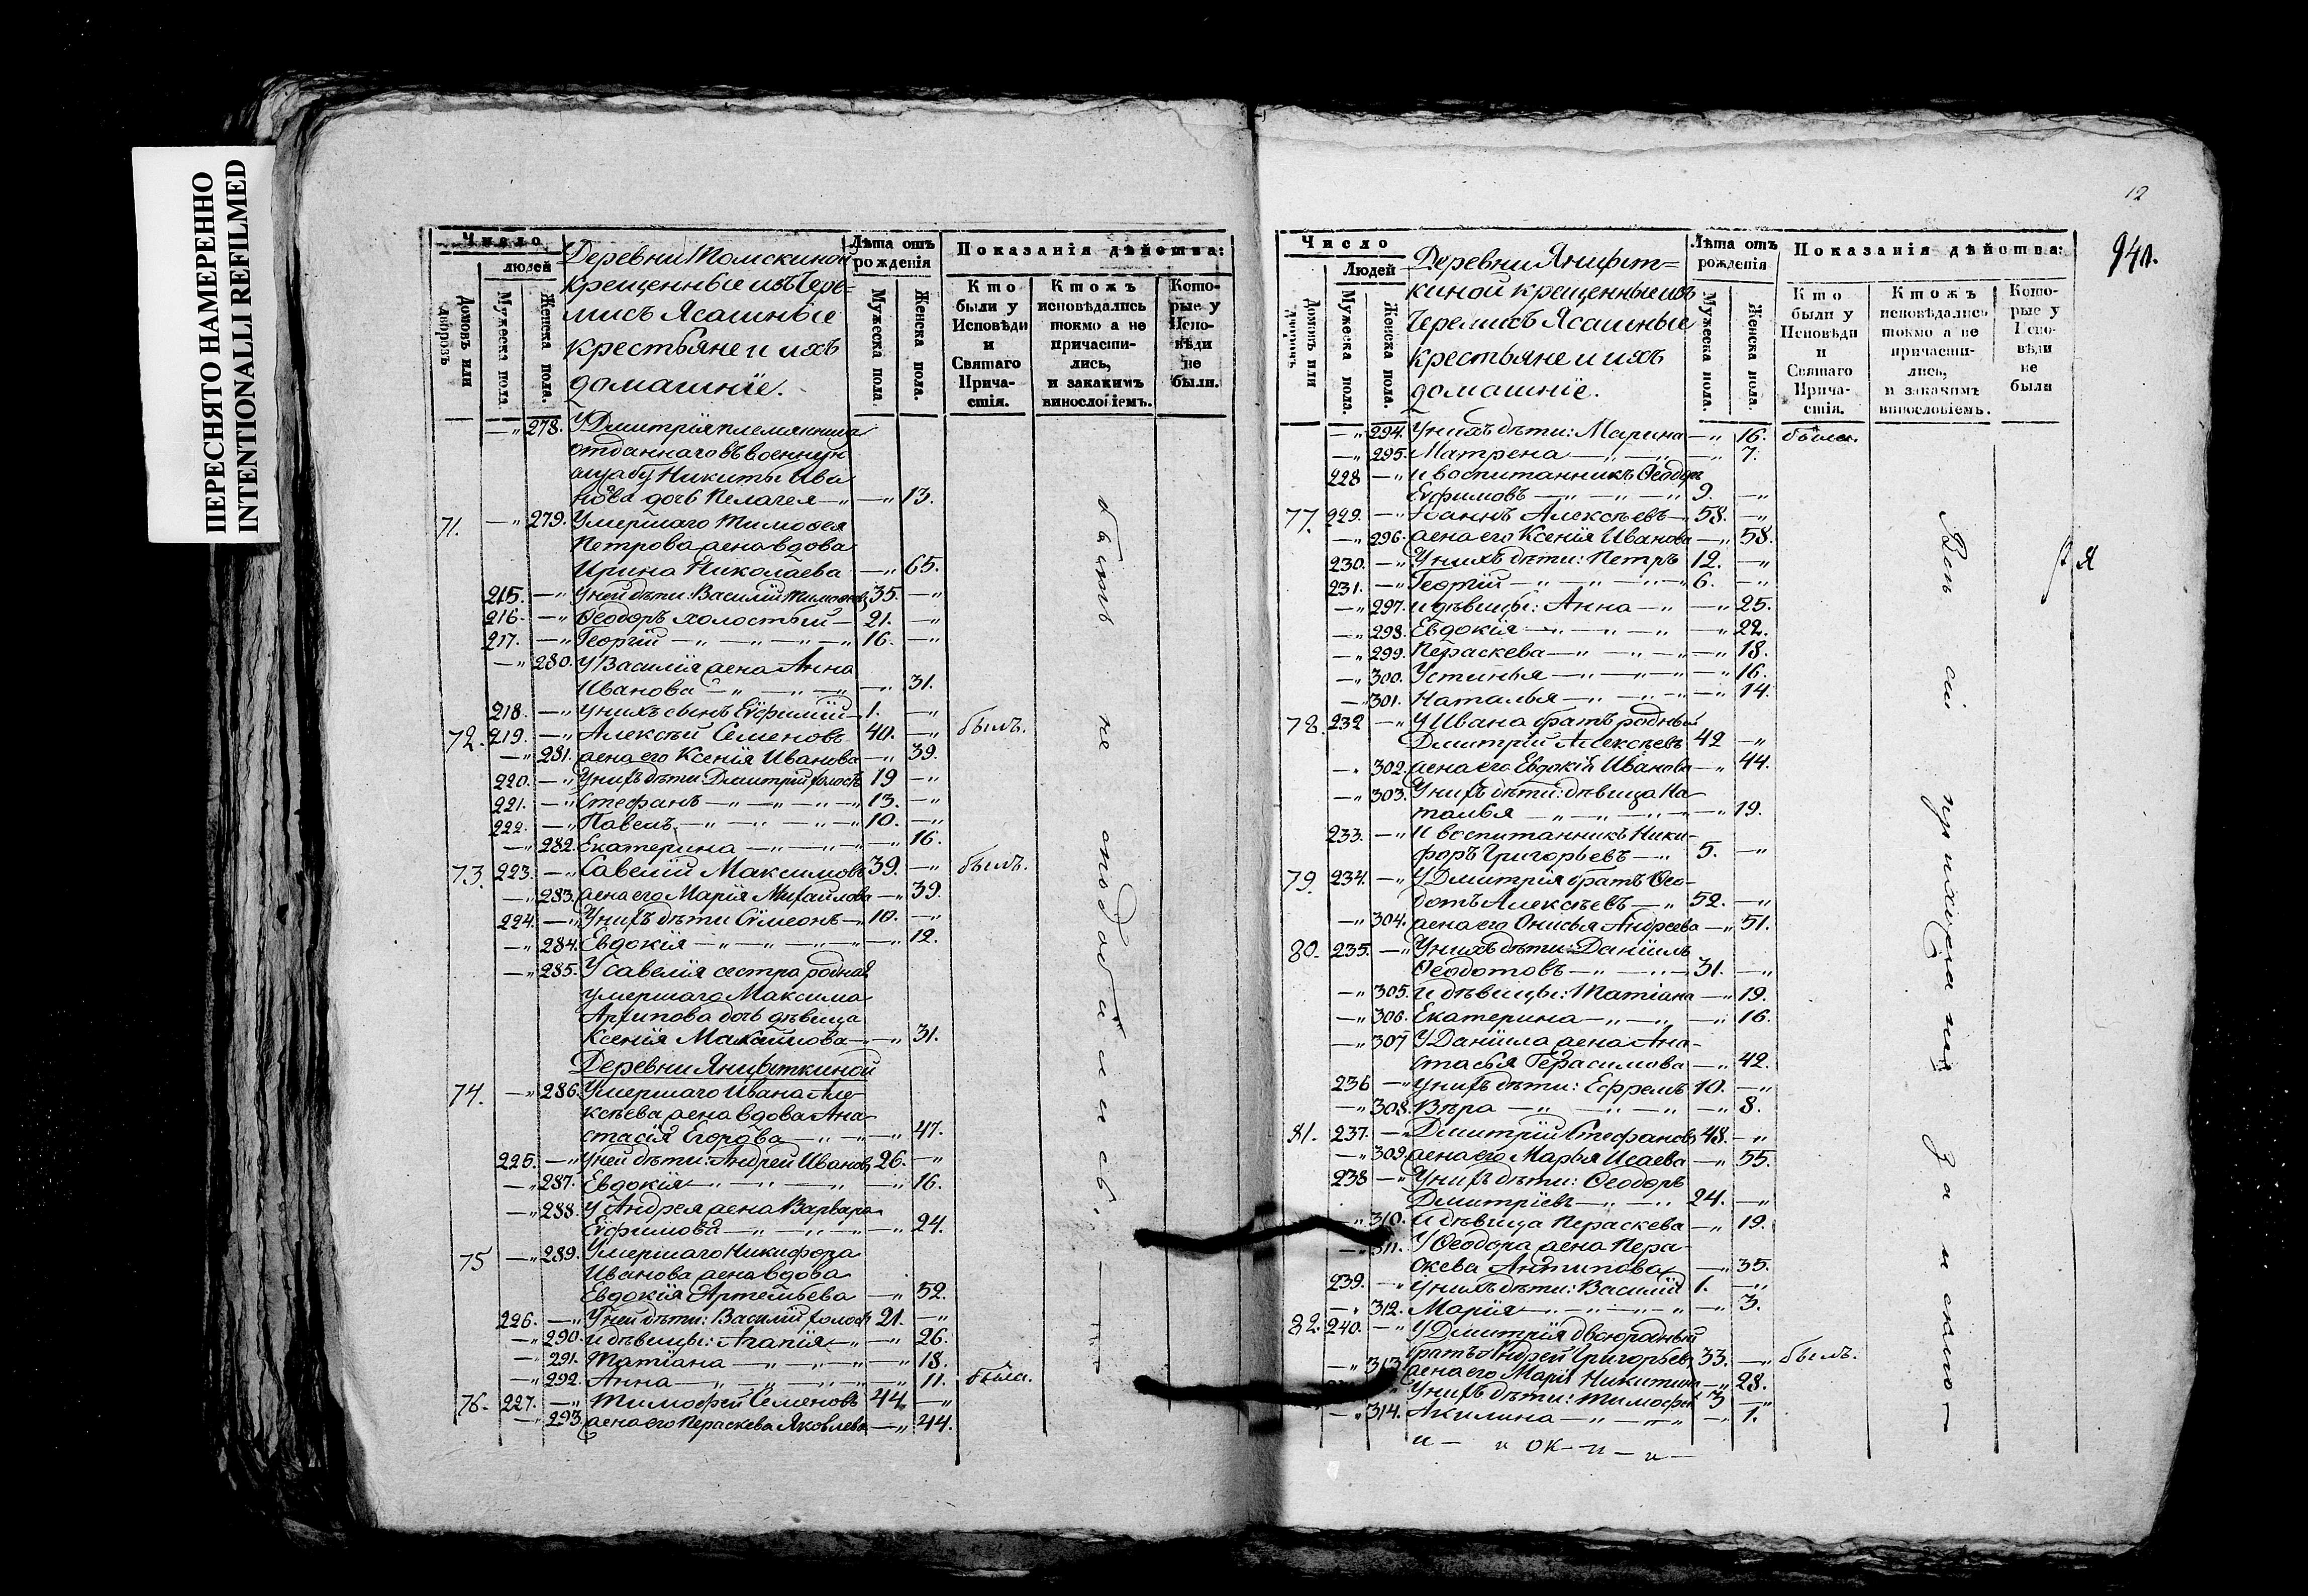 ПЕРЕСНЯТО НАМЕРЕННО
INTENTIONALLI REFILMED
Число
людей
Домовъ или дворовъ
Мужеска пола.
Женска пола.
Деревни Томскиной
крещенные изъ Чере=
мисъ Ясашные
крестьяне и ихъ
домашнїе.
Лѣта отъ рожденія
Мужеска пола.
Женска пола.
Показанія дѣйства:
Кто были у Исповѣди и Святаго Прича-стія.
Ктожъ исповѣдались токмо а не причасти-лись, и закакимъ винословіемъ.
Кото-рые у Испо-вѣди не были.
—„ 278. У Дмитрїя племянника
отданнаго въ военную
службу Никиты Ива
нова дочь Пелагея —„ —„ 13.
71. —„ 279. Умершаго Тимоѳея
Петрова жена вдова
Ирина Николаева —„ 65.
215. —„ У ней дѣти: Василїй Тимоѳеевъ 35. —„
216. —„ Ѳеодоръ холостый — 21. —„
217. —„ Георгїй —„ —„ —„ —„ 16. —„
—„ 280. У Василїя жена Анна
Иванова —„ —„ —„ —„ 31.
218. —„ у нихъ сынъ Еѵфимїй — 1. —„
72. 219. —„ Алексѣй Семеновъ 40. —„ былъ.
—„ 281. жена его Ксенїя Иванова —„ 39.
220. —„ У нихъ дѣти: Дмитрїй холостъ 19 —„
221. —„ Стефанъ —„ —„ —„ —„ 13. —„
222. —„ Павелъ —„ —„ —„ —„ 10. —„
—„ 282. Екатерина —„ —„ —„ —„ 16.
73. 223. —„ Савелїй Максимовъ 39. —„ былъ.
—„ 283. жена его Марїя Михайлова —„ 39.
224. —„ У нихъ дѣти Сѵмеонъ —„ 10. —„
—„ 284. Евдокїя —„ —„ —„ —„ —„ 12.
—„ 285. У Савелїя сестра родная
умершаго Максима
Архипова дочь дѣвица
Ксенїя Максимова —„ —„ 31.
Деревни Янибыткиной
74. —„ 286. Умершаго Ивана Але-
ксѣева жена вдова Ана
стасїя Егорова —„ —„ —„ 47.
225. —„ У ней дѣти: Андрей Ивановъ 26. —„
—„ 287. Евдокїя —„ —„ —„ —„ 16.
—„ 288. У Андрея жена Варвара
Еѵфимова —„ —„ —„ —„ 24.
75 —„ 289. Умершаго Никифора
Иванова жена вдова
Евдокїя Артемьева —„ 52.
226. —„ У ней дѣти: Василїй холостъ 21. —„
—„ 290. и дѣвицы: Агапїя —„ —„ 26.
—„ 291. Татїана —„ —„ —„ —„ 18.
—„ 292. Анна —„ —„ —„ —„ —„ 11. была.
76. 227. —„ Тимофей Семеновъ 44. —„
—„ 293. жена его Пераскева Яковлева —„ 44.
быть не сподобились.
12
941.
Число
Людей
Домовъ или дворовъ
Мужеска пола.
Женска пола.
Деревни Янибыт=
киной крещенные изъ
Черемисъ Ясашные
крестьяне и ихъ
домашнїе.
Лѣта отъ рожденія
Мужеска пола.
Женска пола.
Показанія дѣйства:
Кто были у Исповѣди и Святаго Прича-стія.
Ктожъ исповѣдались токмо а не причасти-лись, и закакимъ винословіемъ.
Кото-рые у Испо-вѣди не были
—„ 294. У нихъ дѣти: Марина —„ 16. были.
—„ 295. Матрена —„ —„ —„ 7.
228 —„ и воспитанникъ Ѳеодоръ
Еѵфимовъ —„ —„ —„ 9. —„
77. 229. —„ Іоаннъ Алексѣевъ —„ 58. —„
—„ 296. жена его Ксенїя Иванова —„ 58.
230. —„ У нихъ дѣти: Петръ 12. —„
231. —„ Георгїй —„ —„ —„ —„ 6. —„
—„ 297. и дѣвицы: Анна —„ —„ 25.
—„ 298. Евдокїя —„ —„ —„ —„ 22.
—„ 299. Пераскева —„ —„ —„ —„ 18.
—„ 300. Устинья —„ —„ —„ —„ 16.
—„ 301. Наталья —„ —„ —„ —„ 14.
78. 232 —„ У Ивана братъ родный
Дмитрїй Алексѣевъ 42 —„
—„ 302. жена его Евдокїя Иванова —„ 44.
—„ 303. У нихъ дѣти: дѣвица На-
талья —„ —„ —„ —„ —„ 19.
233. —„ И воспитанникъ Ники-
форъ Григорьевъ —„ 5. —„
79. 234. —„ У Дмитрїя братъ Ѳео-
дотъ Алексѣевъ —„ 52. —„
—„ 304. жена его Онисья Андреева —„ 51.
80. 235. —„ У нихъ дѣти: Данїилъ
Ѳеодотовъ —„ —„ — 31. —„
—„ 305. и дѣвицы: Татїана —„ 19.
—„ 306. Екатерина —„ —„ —„ 16.
—„ 307 У Данїила жена Ана-
стасья Герасимова —„ 42.
236 —„ У нихъ дѣти: Ефремъ 10. —„
—„ 308. Вѣра —„ —„ —„ —„ 8.
81. 237. —„ Дмитрїй Стефановъ 48. —„
—„ 309. жена его Марья Исаева —„ 55.
238 —„ У нихъ дѣти: Ѳеодоръ
Дмитрїевъ —„ —„ 24. —„
—„ 310. и дѣвица Пераскева —„ 19.
—„ 311. У Ѳеодора жена Пера-
скева Антипова —„ 35.
239. —„ У нихъ дѣти: Василїй 1. —„
—„ 312. Марїя —„ —„ —„ —„ —„ 3.
82. 240. —„ У Дмитрїя двоюродный
братъ Андрей Григорьевъ 33. —„ былъ.
—„ 313. жена его Марїя Никитина —„ 28.
У нихъ дѣти: Тимофей 3 —„
—„ 314. Акилина —„ —„ —„ —„ 1.